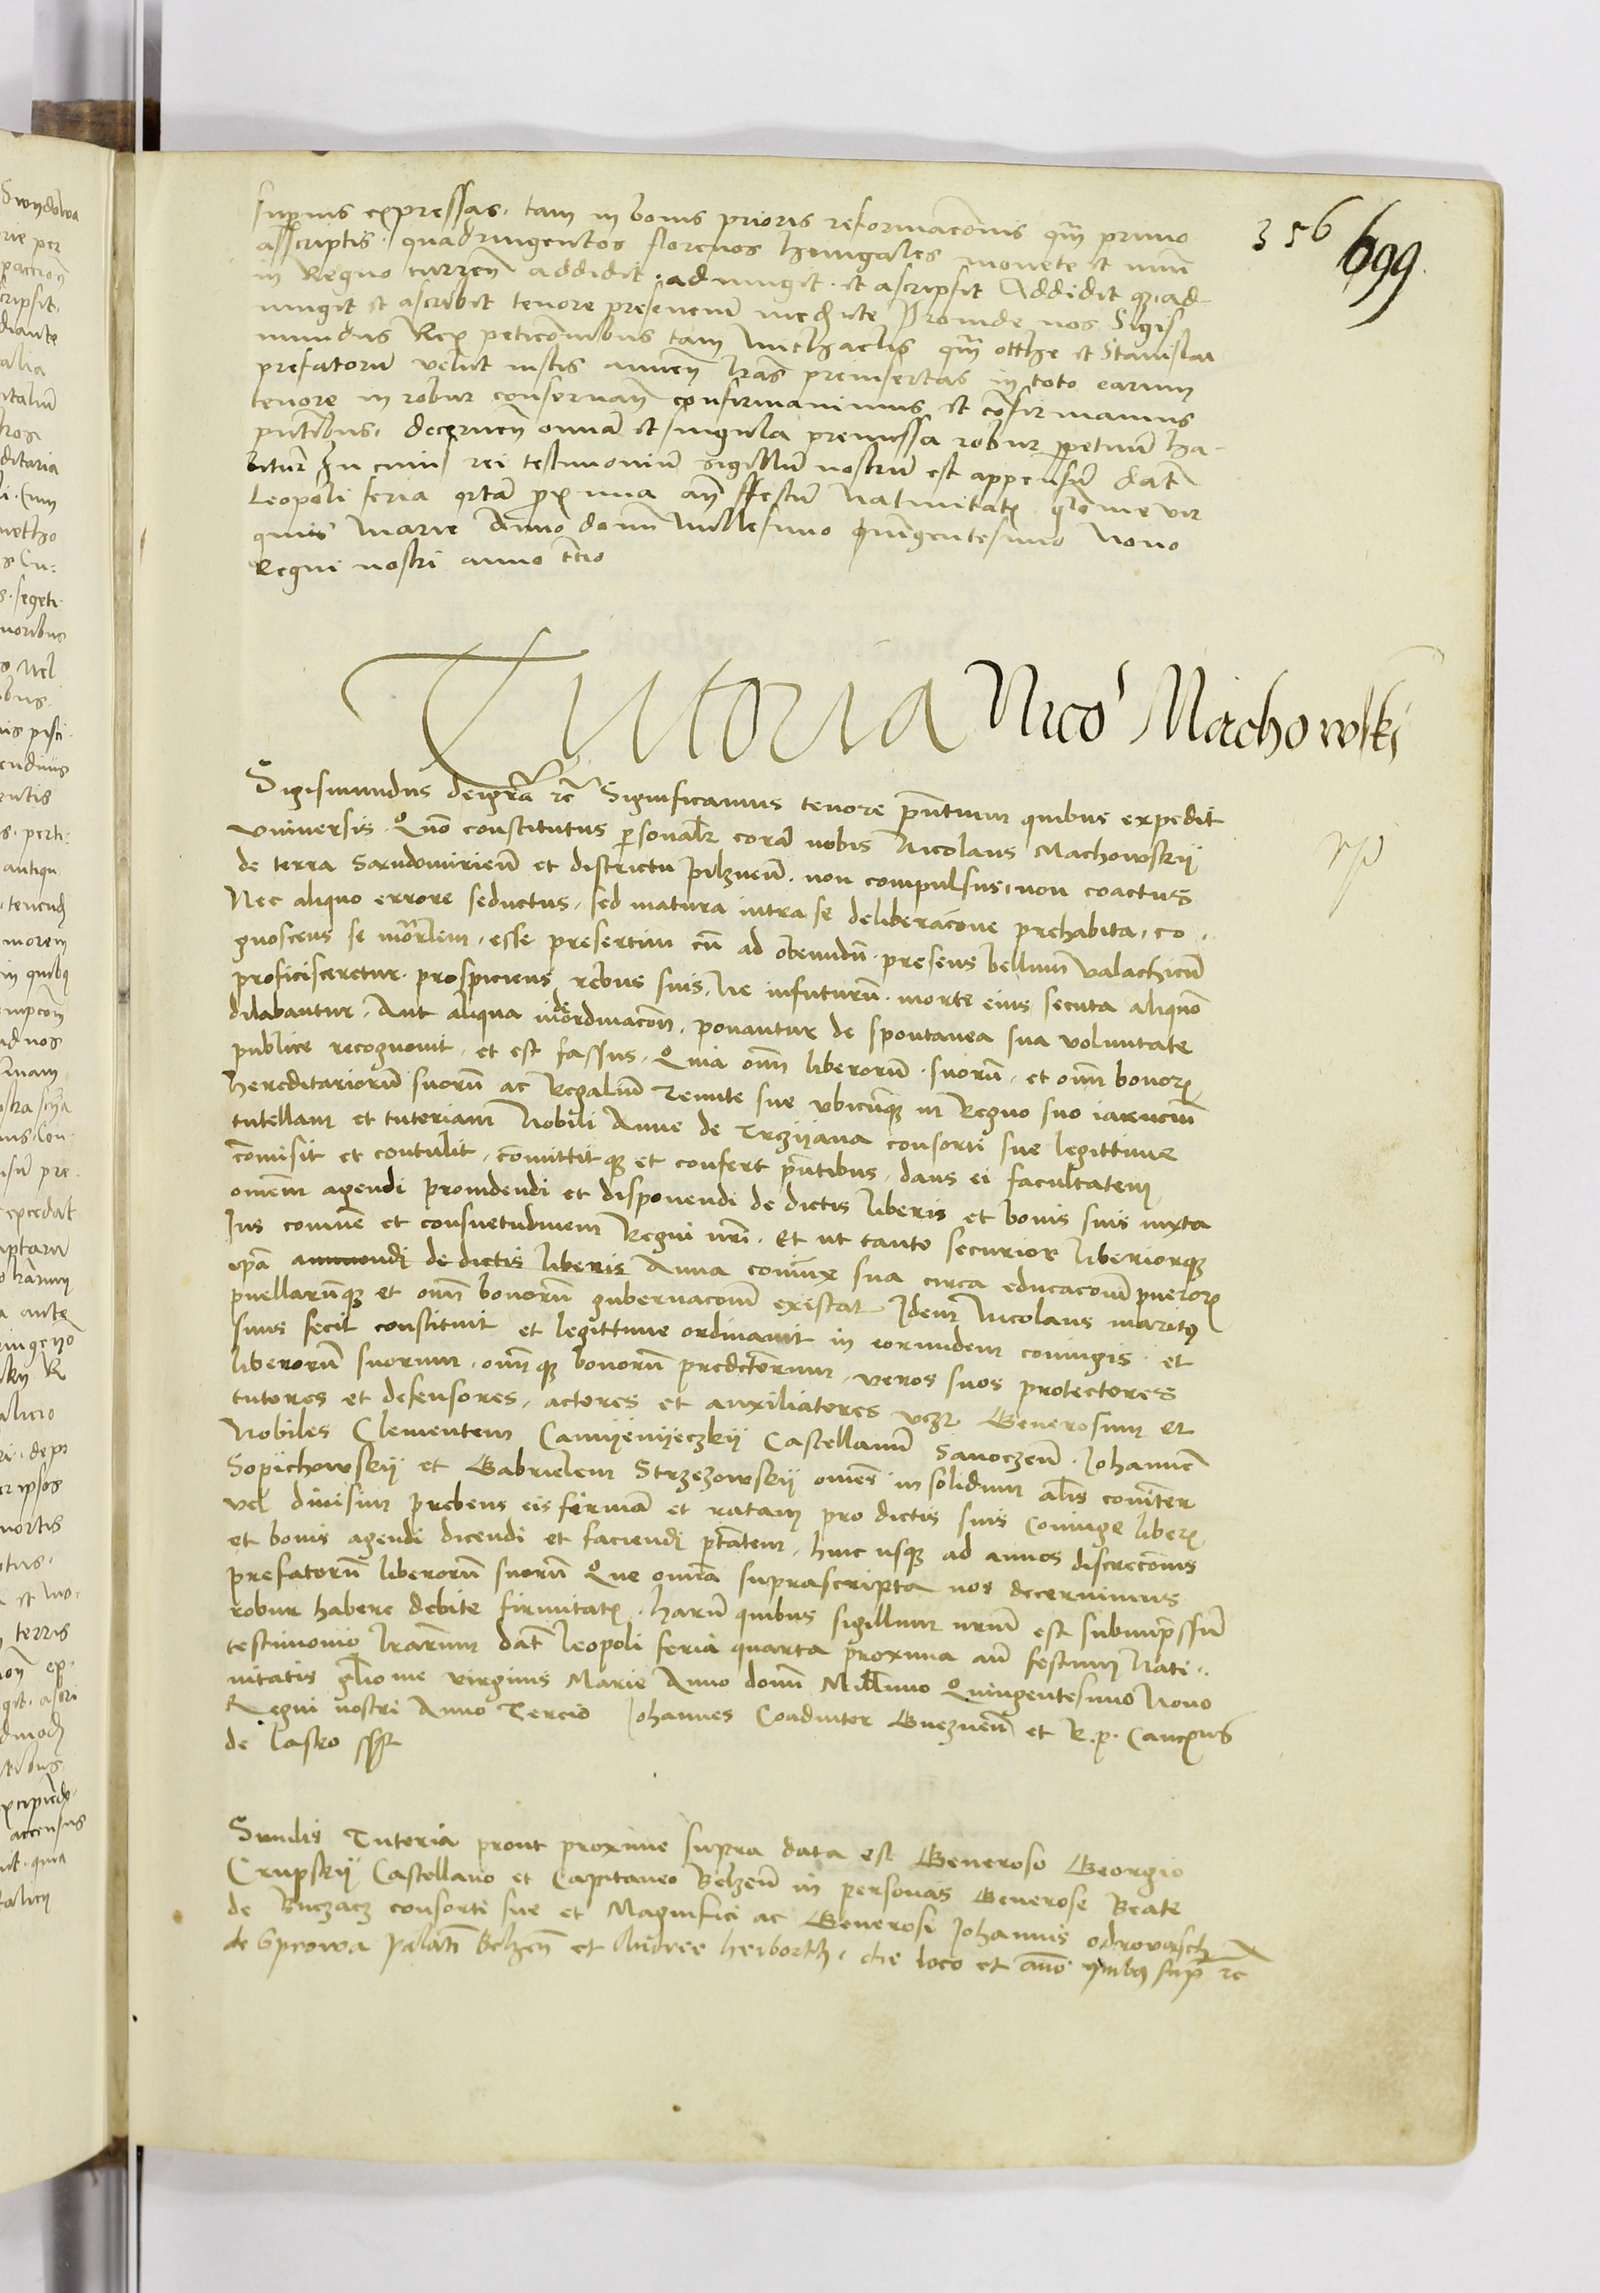 356 699
supius expressas. tam in bonis prioris reformacois qm primo
asscriptis. quadringentos florenos hungales monete et nuri
in Regno curren addidit. adiungit. et ascripsit Addidit q. ad
iungit et ascribit tenore presencium mediante Proinde nos Sigis
mundus Rex peticoibus tam Michaelis qm otthe et Stanislai
prefatoru velut iustis annuen lras preinsertas in toto earum
tenore in robur conseruan confirmauimus et cofirmamus
pntibus. decernen omia et singula premissa robur ppetuu ha-
bitur In cuius rei testimoniu sigillu nostru est appensu Dat
Leopoli feria qrta px ima an ffestu Natiuitat gloe vir
ginis Marie Anno domi Millesimo quingentesimo Nono
Regni nostri anno tcio
Tutoria Nico Machowski
Sigismundus deigra rc Significamus tenore pntium quibus expedit
vniuersis. Quo constitutus psonalr cora nobis Nicolaus Machowskij
de terra Sandomirien et districtu pilznen. non compulsus, non coactus
Nec aliquo errore seductus, sed matura intra se deliberacione prehabita, co-
gnoscens se mortalem, esse presertim cu ad obeundu. presens bellum valachicu
proficisceretur. prospiciens rebus suis, Ne infuturu. morte eius secuta aliquo
dilabantur. Aut aliqua inordinacon, ponantur de spontanea sua voluntate
publice recognouit, et est fassus. Quia oim liberoru. suoru. et oim bonor
hereditarioru suoru ac Regaliu Tenute sue vbicunq in Regno suo iacenciu
tutellam et tutoriam Nobili Anne de Trzijana consorti sue legittime
comisit et contulit. comittitq et confert pntibus. dans ei facultatem
omem agendi prouidendi et disponendi de dictis liberis et bonis suis iuxta
Ius comune et consuetudinem Regni nri. Et ut tanto securior liberiorq
ipa de dictis liberis Anna coniux sua circa educacoem pueror
puellarumq et oim bonoru gubernacoem existat Idem Nicolaus maritus
suus fecit constituit et legittime ordinauit in eorundem coniugis. et
liberoru suorum. oimq bonoru predictorum. veros suos protectores
tutores et defensores. actores et auxiliatores vcz Generosum et
Nobiles Clementem Camijenijeczkij Castellanu Sanoczen. Johanne
Sopichowskij et Gabrielem Strzezowskij omes in solidum als coniter
vel diuisim prebens eis firma et ratam pro dictis suis coniuge liber
et bonis agendi dicendi et faciendi ptatem. hinc usq ad annos discrecois
prefatoru liberoru suoru Que omia suprascripta nos decernimus
robur habere debite firmitat. Haru quibus sigillum nrum est subimpressu
testimonio lrarum Dat Leopoli feria quarta proxima an festum Nati-
uitatis gloe virginis Marie Anno domi Millimo Quingentesimo Nono
Regni nostri Anno Tercio Johannes Coadiutor Gneznen et R. p. Cancius
de Lasko sst
Similis Tutoria prout proxime supra data est Generoso Georgio
Crupskij Castellano et Capitaneo Belzen in personas Generose Beate
de Buczacz consorti sue et Magnifici ac Generosi Johannis odrowasch
de Sprowa palati Belzen et Andree herborth. die loco et anno quibus sup rc